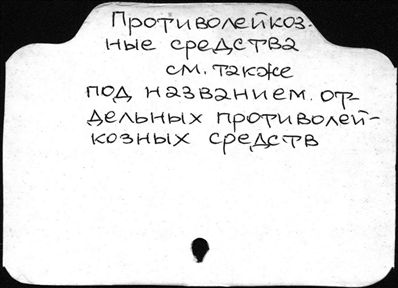 Противолейкоз-
ные средства
см. также
под названием. от-
дельных противолей-
козных средств